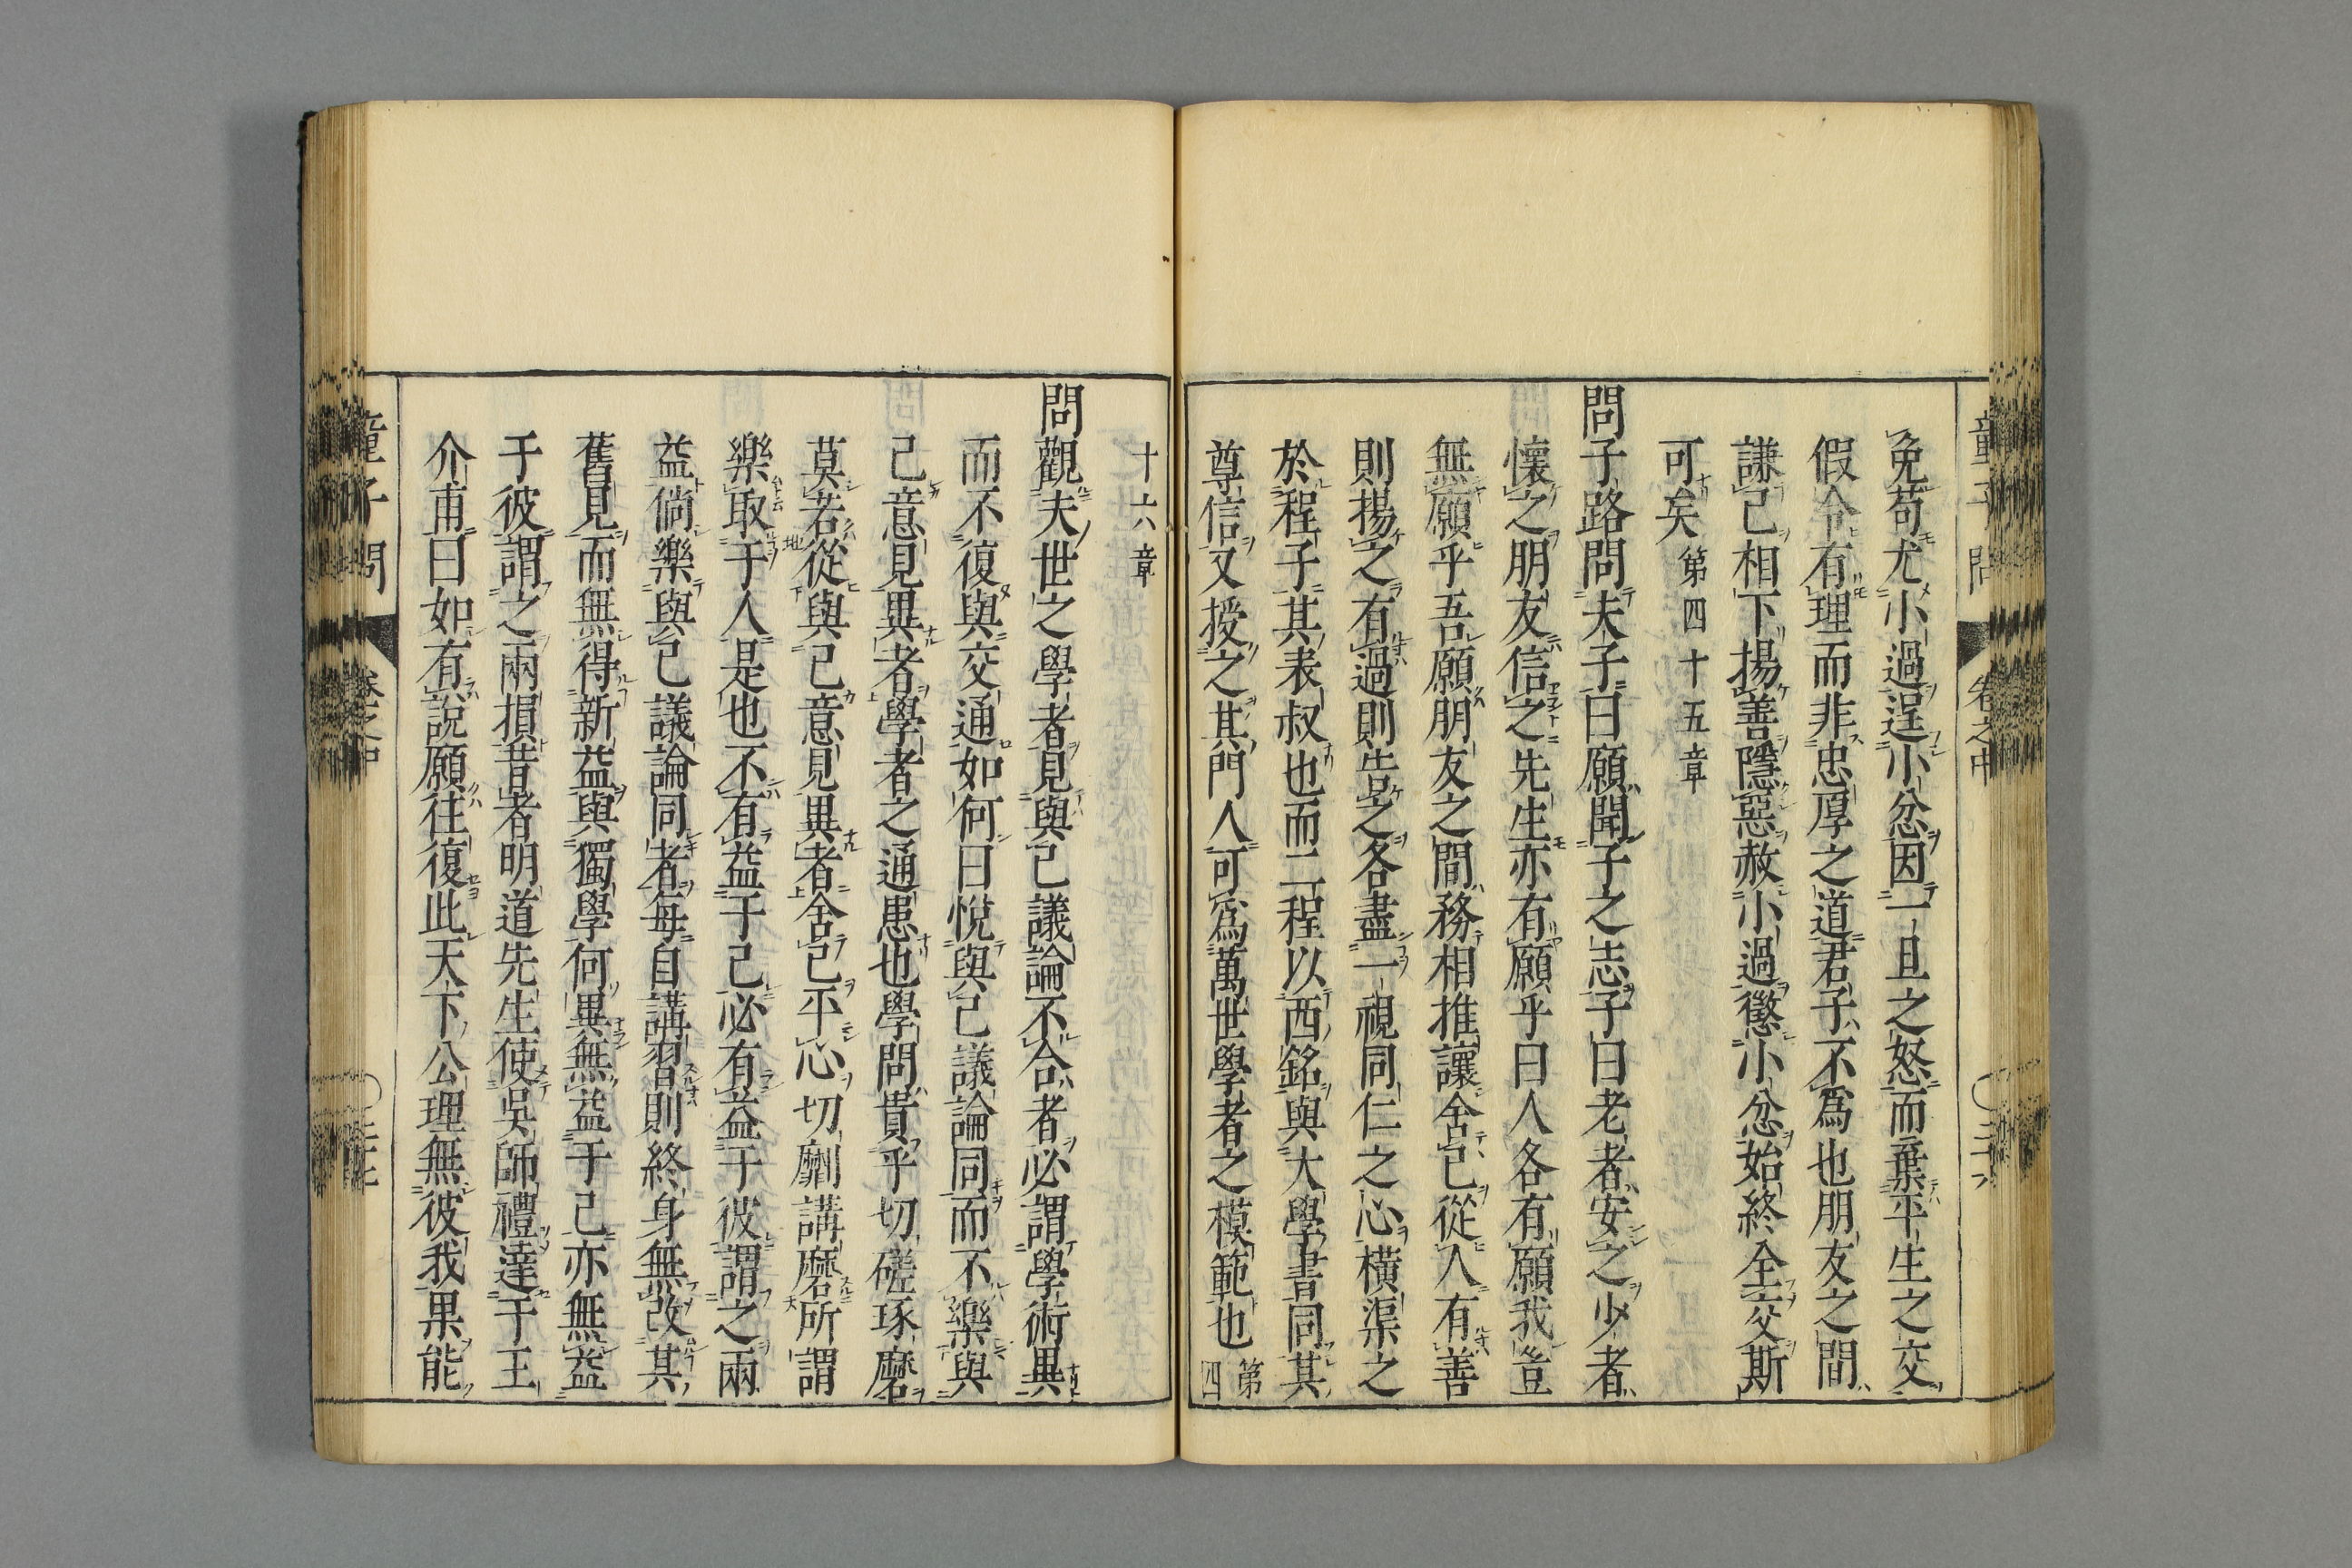 免苟尤小過逞小忿因一旦之怒而棄平生之交
假令有理而非忠厚之道君子不爲也朋友之間
謙己相下揚善隱惡赦小過懲小忿始終全交斯
可矣第四十五章
問子路問夫子曰願聞子之志子曰老者安之少者
懷之朋友信之先生亦有願乎曰人各有願我豈
無願乎吾願朋友之間務相推讓舍己從人有善
則揚之有過則告之各盡一視同仁之心橫渠之
於程子其表叔也而二程以西銘與大學書同其
尊信又授之其門人可爲萬世學者之模範也第四
十六章
問觀夫世之學者見與己議論不合者必謂學術異
而不復與交通如何曰悅與己議論同而不樂與
己意見異者學者之通患也學問貴乎切磋琢磨
莫若從與己意見異者舍己平心切劘講磨所謂
樂取于人是也不有益于己必有益于彼謂之兩
益倘樂與己議論同者每自講習則終身無改其
舊見而無得新益與獨學何異無益于己亦無益
于彼謂之兩損昔者明道先生使吳師禮達于王
介甫曰如有說願往復此天下公理無彼我果能
童子問 卷之中